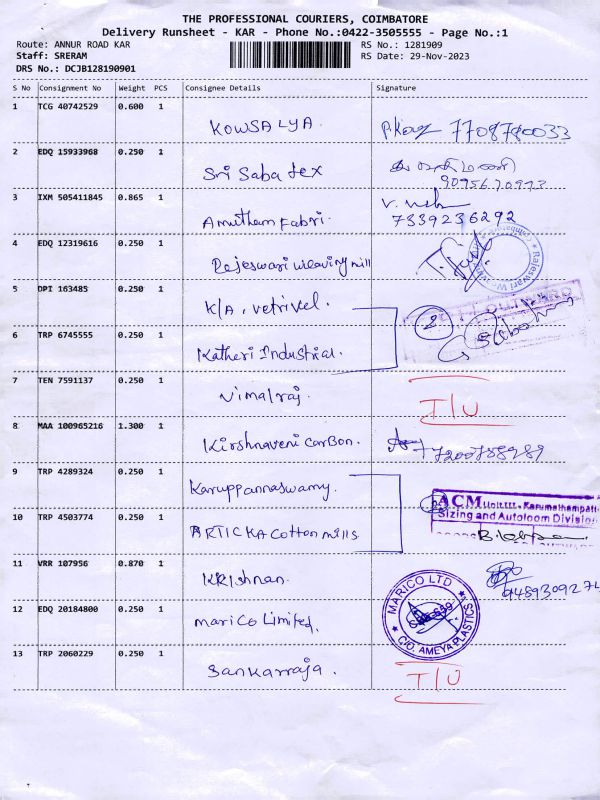 THE PROFESSIONAL COURIERS, COIMBATORE
Delivery Runsheet - KAR - Phone No.:0422-3505555 - Page No.:1
Route: ANNUR ROAD KAR RS No.: 1281909
Staff: SRERAM RS Date: 29-Nov-2023
DRS No.: DCJB128190901
S No Consignment No Weight PCS Consignee Details Signature
1 TCG 40742529 0.600 1
KOWSALYA. 7708780033
2 EDQ 15933968 0.250 1
Sri Saba tex
3 IXM 505411845 0.865 1
Amutham Fabri. 7339236292
4 EDQ 12319616 0.250 1
Rajeswari weaving mill
Rajeswari
5 DPI 163485 0.250 1
K/A. vetrivel.
2
6 TRP 6745555 0.250 1
Katheri Industrial.
7 TEN 7591137 0.250 1
Vimalraj. I/U
8 MAA 100965216 1.300 1
Kirshnaveni Carbon.
9 TRP 4289324 0.250 1
Karuppannaswamy.
ACM Unit:III - Karumathampatti
Sizing and Autoloom Division
10 TRP 4503774 0.250 1
ARTICKA Cotton mills
11 VRR 107956 0.870 1
KRIshnan.
12 EDQ 20184800 0.250 1
marico Limited.
MARICO LTD
C/O. AMEYA PLASTICS
13 TRP 2060229 0.250 1
Sankarraja. I/U